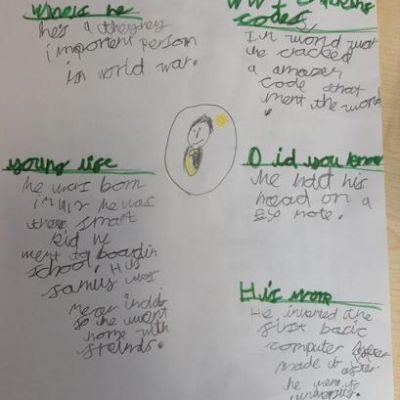 he's a
important person
in world war.
WW1
codes
In world war
he cracked
a amazen
code that
ment the world
young life
he was born
in he was
smart
kid he
went to boardin
school. His
was
never indi
so he went
home with
Did you know
he had his
head on a
£50 note.
His work
He invented the
first basic
computer
made it after
he went to